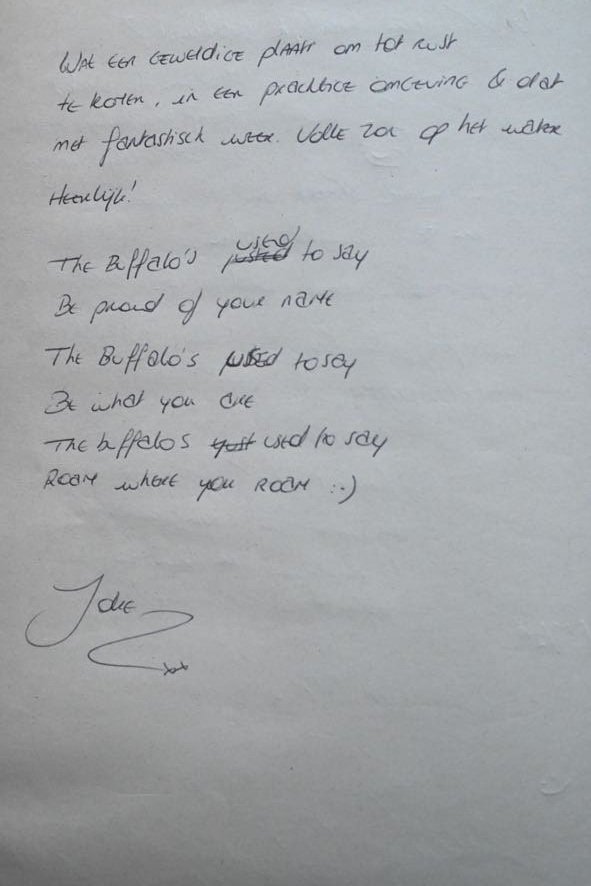 Wat een geweldige plaats om tot rust
te komen, in een prachtige omgeving & dat
met fantastisch weer. Volle zon op het water
Heerlijk!
The Buffalo's used to say
Be proud of your name
The Buffalo's used to say
Be what you are
The buffalo's just used to say
Roam where you roam :-)
xx